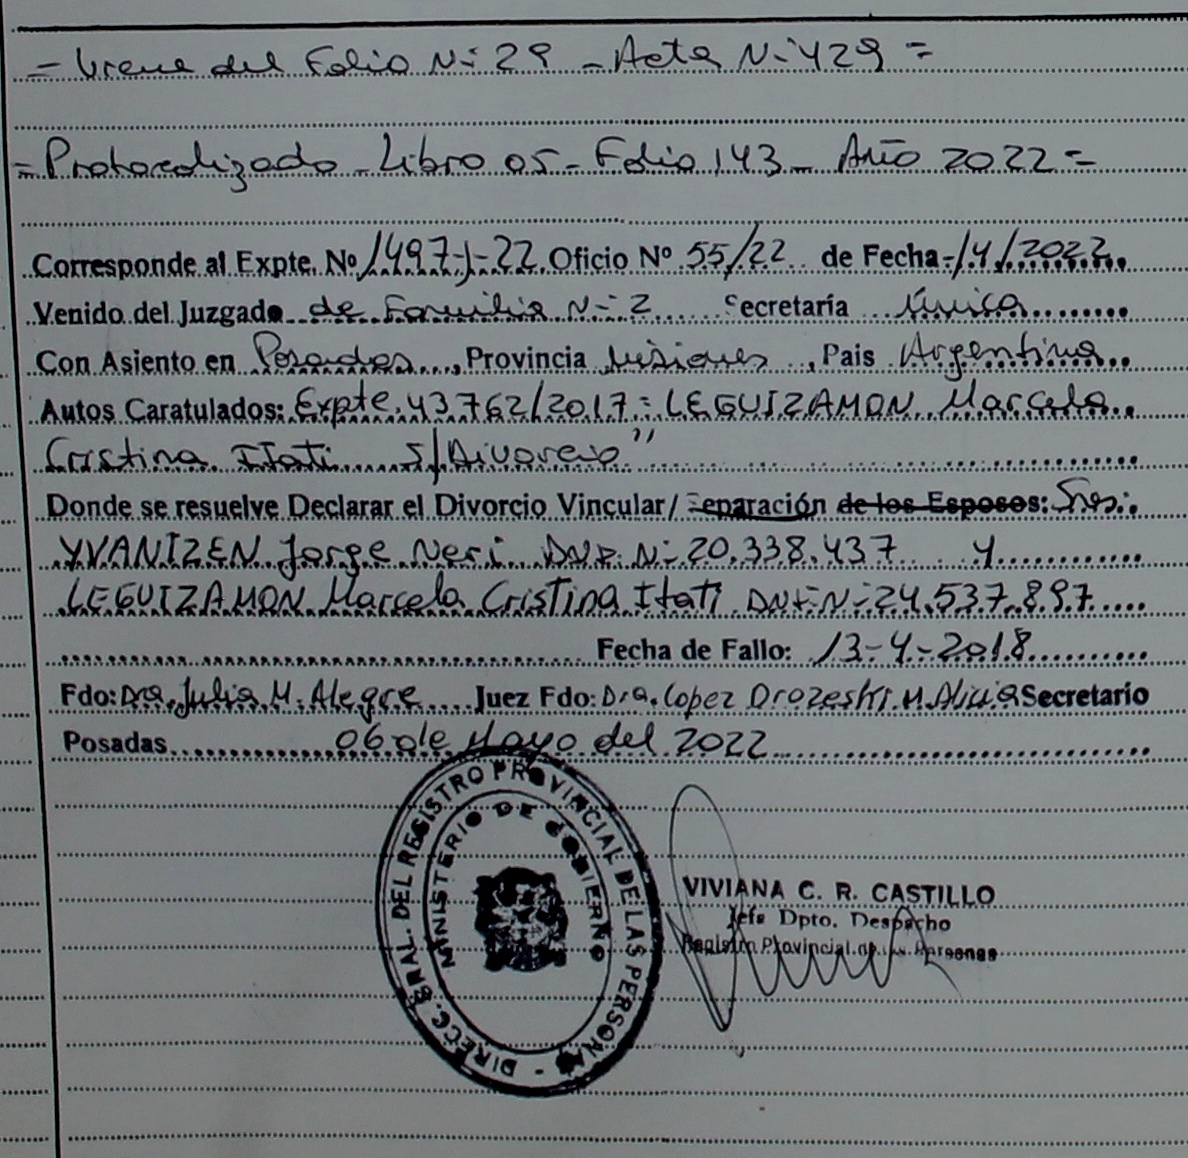 = Viene del Folio N-: 29 - Acta N-: 429 =
= Protocolizado - Libro 05 - Folio 143 - Año 2022 =
Corresponde al Expte. Nº 1497-J-22 Oficio Nº 55/22 de Fecha -/4/2022
Venido del Juzgado de Familia N-: 2 Secretaría Única
Con Asiento en Posadas, Provincia Misiones, Pais Argentina
Autos Caratulados: Expte. 43.762/2017 = LEGUIZAMON Marcela
Cristina Itati S/Divorcio"
Donde se resuelve Declarar el Divorcio Vincular/ Separación de los Esposos: Sres.:
YVANIZEN Jorge Neri DNI. N-: 20.338.437 y
LEGUIZAMON Marcela Cristina Itati DNI-N-: 24.537.897
Fecha de Fallo: 13-4-2018
Fdo: Dra. Julia M. Alegre Juez Fdo: Dra. Lopez M. Alicia Secretario
Posadas 06 de Mayo del 2022
DIRECC. GRAL. DEL REGISTRO PROVINCIAL DE LAS PERSONAS -
MINISTERIO DE GOBIERNO
VIVIANA C. R. CASTILLO
Jefa Dpto. Despacho
Registro Provincial de las Personas